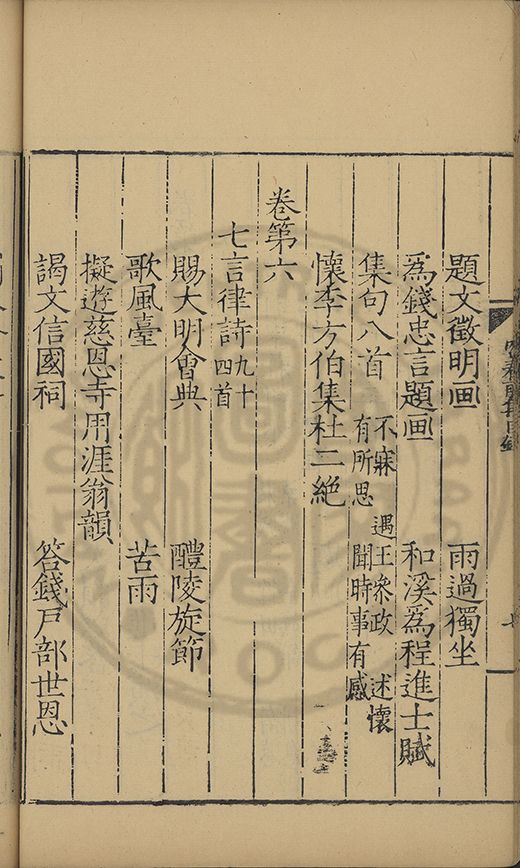 題文徵明画　雨過獨坐
爲錢忠言題画　和溪爲程進士賦
集句八首　不寐　遇王叅政　述懷　有所思　聞時事有感
懷李方伯集杜二絶
卷第六
七言律詩九十四首
賜大明會典　醴陵旋節
歌風臺　苦雨
擬遊慈恩寺用涯翁韻
謁文信國祠　答錢戶部世恩